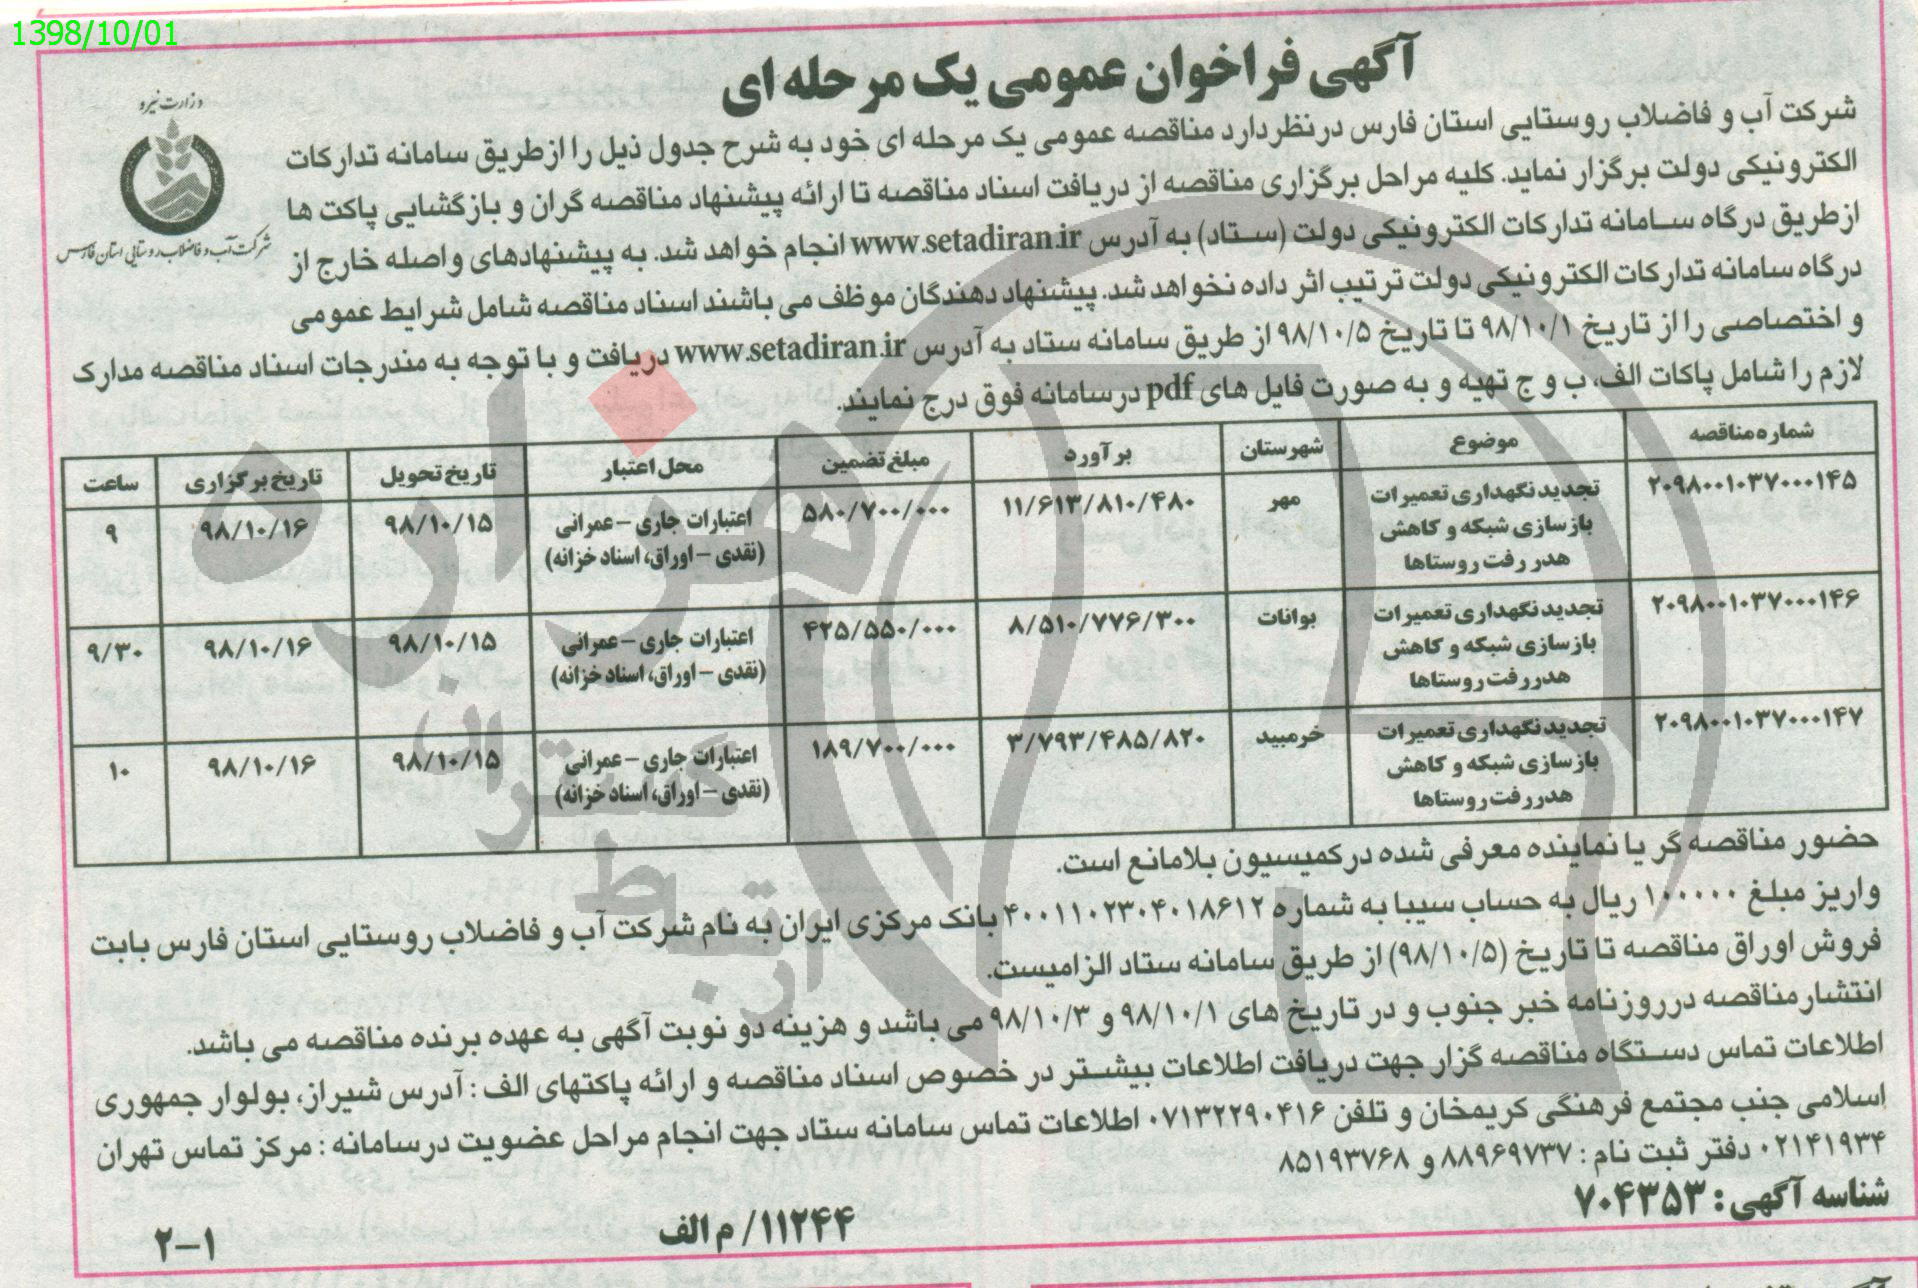 1398/10/01
آگهی فراخوان عمومی یک مرحله ای
وزارت نیرو
شرکت آب و فاضلاب روستایی استان فارس
شرکت آب و فاضلاب روستایی استان فارس درنظردارد مناقصه عمومی یک مرحله ای خود به شرح جدول ذیل را ازطریق سامانه تدارکات
الکترونیکی دولت برگزار نماید. کلیه مراحل برگزاری مناقصه از دریافت اسناد مناقصه تا ارائه پیشنهاد مناقصه گران و بازگشایی پاکت ها
ازطریق درگاه سامانه تدارکات الکترونیکی دولت (ستاد) به آدرس www.setadiran.ir انجام خواهد شد. به پیشنهادهای واصله خارج از
درگاه سامانه تدارکات الکترونیکی دولت ترتیب اثر داده نخواهد شد. پیشنهاد دهندگان موظف می باشند اسناد مناقصه شامل شرایط عمومی
و اختصاصی را از تاریخ ۹۸/۱۰/۱ تا تاریخ ۹۸/۱۰/۵ از طریق سامانه ستاد به آدرس www.setadiran.ir دریافت و با توجه به مندرجات اسناد مناقصه مدارک
لازم را شامل پاکات الف، ب و ج تهیه و به صورت فایل های pdf درسامانه فوق درج نمایند.
شماره مناقصه موضوع شهرستان برآورد مبلغ تضمین محل اعتبار تاریخ تحویل تاریخ برگزاری ساعت
۲۰۹۸۰۰۱۰۳۷۰۰۰۱۴۵ تجدید نگهداری تعمیرات مهر ۱۱/۶۱۳/۸۱۰/۴۸۰ ۵۸۰/۷۰۰/۰۰۰ اعتبارات جاری – عمرانی ۹۸/۱۰/۱۵ ۹۸/۱۰/۱۶ ۹
بازسازی شبکه و کاهش (نقدی – اوراق، اسناد خزانه)
هدر رفت روستاها
۲۰۹۸۰۰۱۰۳۷۰۰۰۱۴۶ تجدید نگهداری تعمیرات بوانات ۸/۵۱۰/۷۷۶/۳۰۰ ۴۲۵/۵۵۰/۰۰۰ اعتبارات جاری – عمرانی ۹۸/۱۰/۱۵ ۹۸/۱۰/۱۶ ۹/۳۰
بازسازی شبکه و کاهش (نقدی – اوراق، اسناد خزانه)
هدررفت روستاها
۲۰۹۸۰۰۱۰۳۷۰۰۰۱۴۷ تجدید نگهداری تعمیرات خرمبید ۳/۷۹۳/۴۸۵/۸۲۰ ۱۸۹/۷۰۰/۰۰۰ اعتبارات جاری – عمرانی ۹۸/۱۰/۱۵ ۹۸/۱۰/۱۶ ۱۰
بازسازی شبکه و کاهش (نقدی – اوراق، اسناد خزانه)
هدررفت روستاها
حضور مناقصه گر یا نماینده معرفی شده درکمیسیون بلامانع است.
واریز مبلغ ۱۰۰۰۰۰۰ ریال به حساب سیبا به شماره ۴۰۰۱۱۰۲۳۰۴۰۱۸۶۱۲ بانک مرکزی ایران به نام شرکت آب و فاضلاب روستایی استان فارس بابت
فروش اوراق مناقصه تا تاریخ (۹۸/۱۰/۵) از طریق سامانه ستاد الزامیست.
انتشارمناقصه درروزنامه خبر جنوب و در تاریخ های ۹۸/۱۰/۱ و ۹۸/۱۰/۳ می باشد و هزینه دو نوبت آگهی به عهده برنده مناقصه می باشد.
اطلاعات تماس دستگاه مناقصه گزار جهت دریافت اطلاعات بیشتر در خصوص اسناد مناقصه و ارائه پاکتهای الف : آدرس شیراز، بولوار جمهوری
اسلامی جنب مجتمع فرهنگی کریمخان و تلفن ۰۷۱۳۲۲۹۰۴۱۶ اطلاعات تماس سامانه ستاد جهت انجام مراحل عضویت درسامانه : مرکز تماس تهران
۰۲۱۴۱۹۳۴ دفتر ثبت نام : ۸۸۹۶۹۷۳۷ و ۸۵۱۹۳۷۶۸
شناسه آگهی : ۷۰۴۳۵۳
۱۱۲۴۴/ م الف
۲–۱
هزاره
گستران
مرتبط